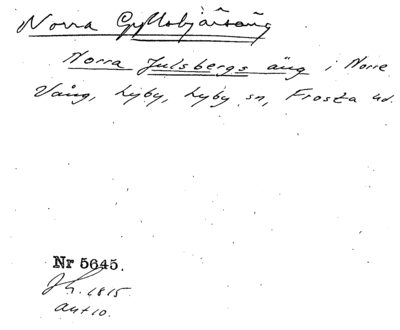 Norra Gyllsbjärsäng
Norra Julsbergs äng i Norre
Vång, Lyby, Lyby sn, Frosta hd.
Nr 5645.
1815
akt 10.